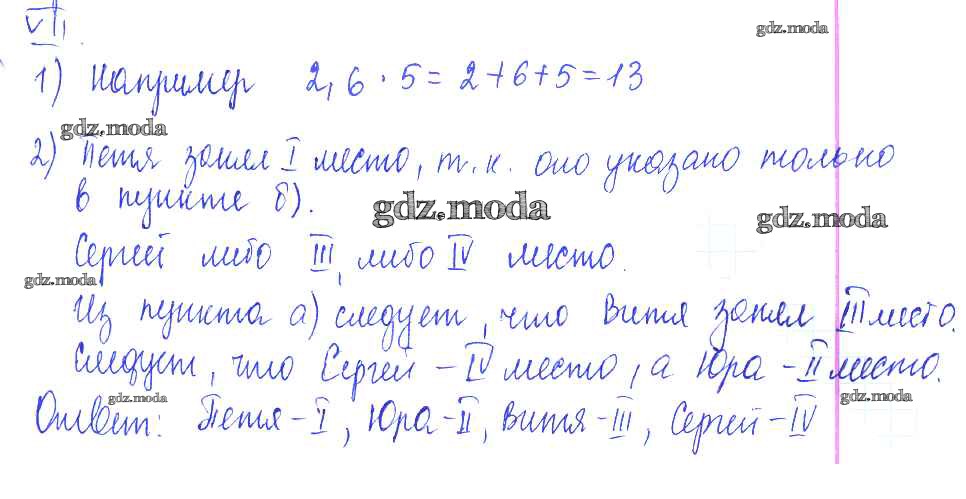 VII.
gdz.moda
1) Например 2,6 · 5 = 2+6+5 = 13
gdz.moda
2) Петя занял I место, т.к. оно указано только
в пункте б).
gdz.moda
gdz.moda
Сергей либо III, либо IV место.
gdz.moda
Из пункта а) следует, что Витя занял III место.
Следует, что Сергей – IV место, а Юра – II место.
gdz.moda
gdz.moda
Ответ: Петя – I, Юра – II, Витя – III, Сергей – IV